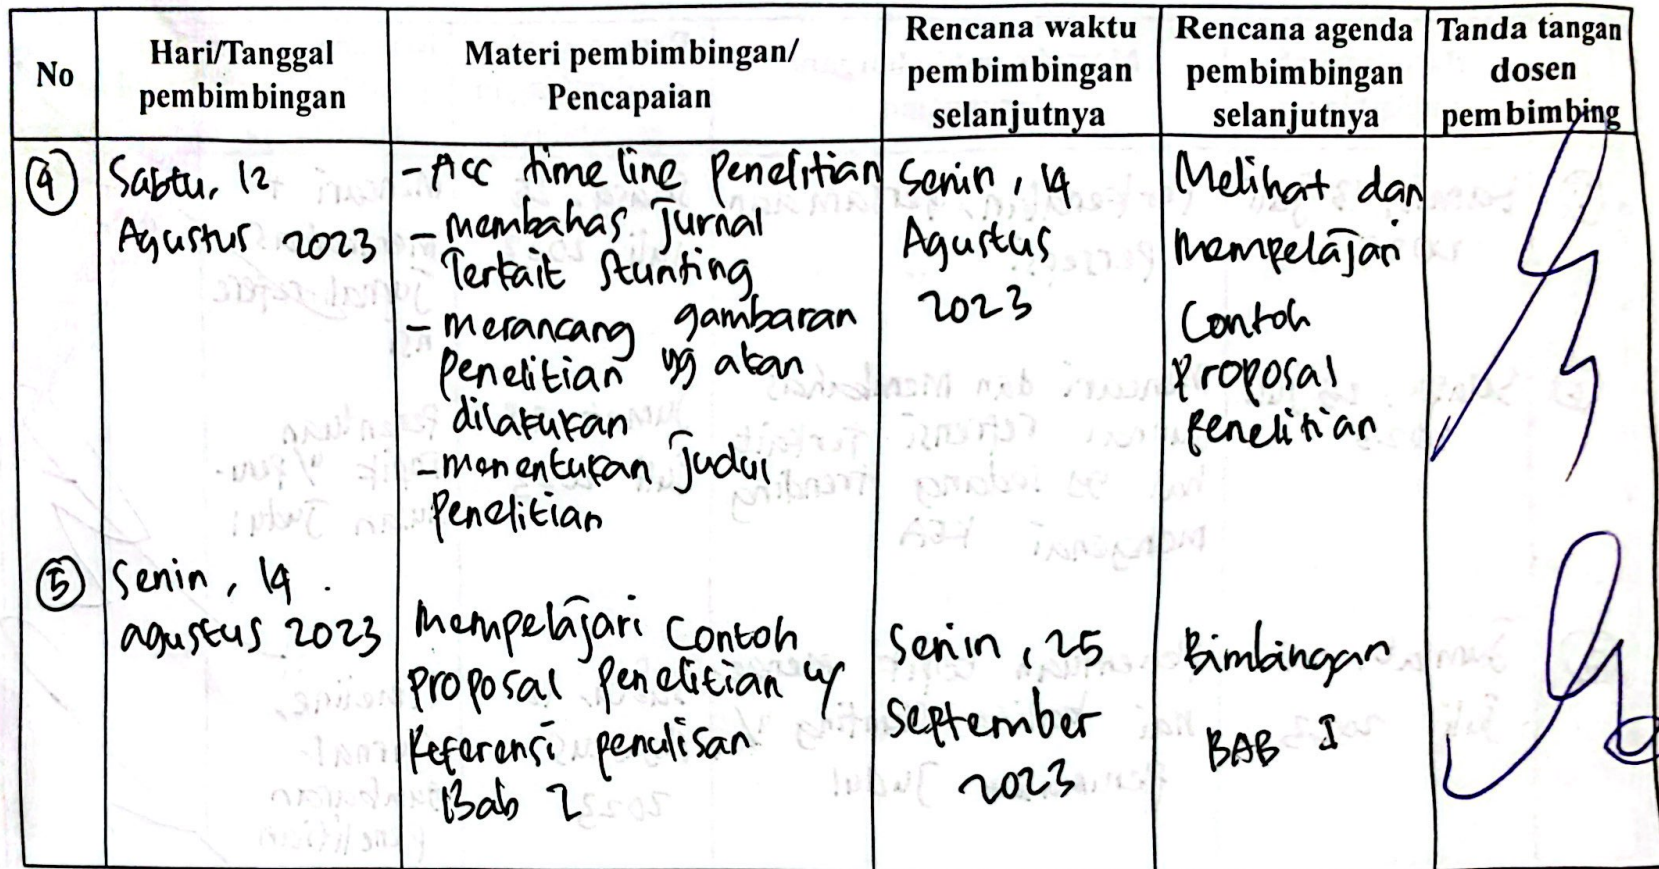 No
Hari/Tanggal
pembimbingan
Materi pembimbingan/
Pencapaian
Rencana waktu
pembimbingan
selanjutnya
Rencana agenda
pembimbingan
selanjutnya
Tanda tangan
dosen
pembimbing
4
Sabtu, 12
Agustus 2023
- Acc time line Penelitian
- membahas Jurnal
Terkait Stunting
- merancang gambaran
Penelitian yg akan
dilakukan
- menentukan Judul
Penelitian
Senin, 14
Agustus
2023
Melihat dan
Mempelajari
Contoh
Proposal
Penelitian
5
Senin, 14
agustus 2023
Mempelajari Contoh
Proposal Penelitian u/
Referensi penulisan
Bab 2
Senin, 25
September
2023
Bimbingan
BAB I